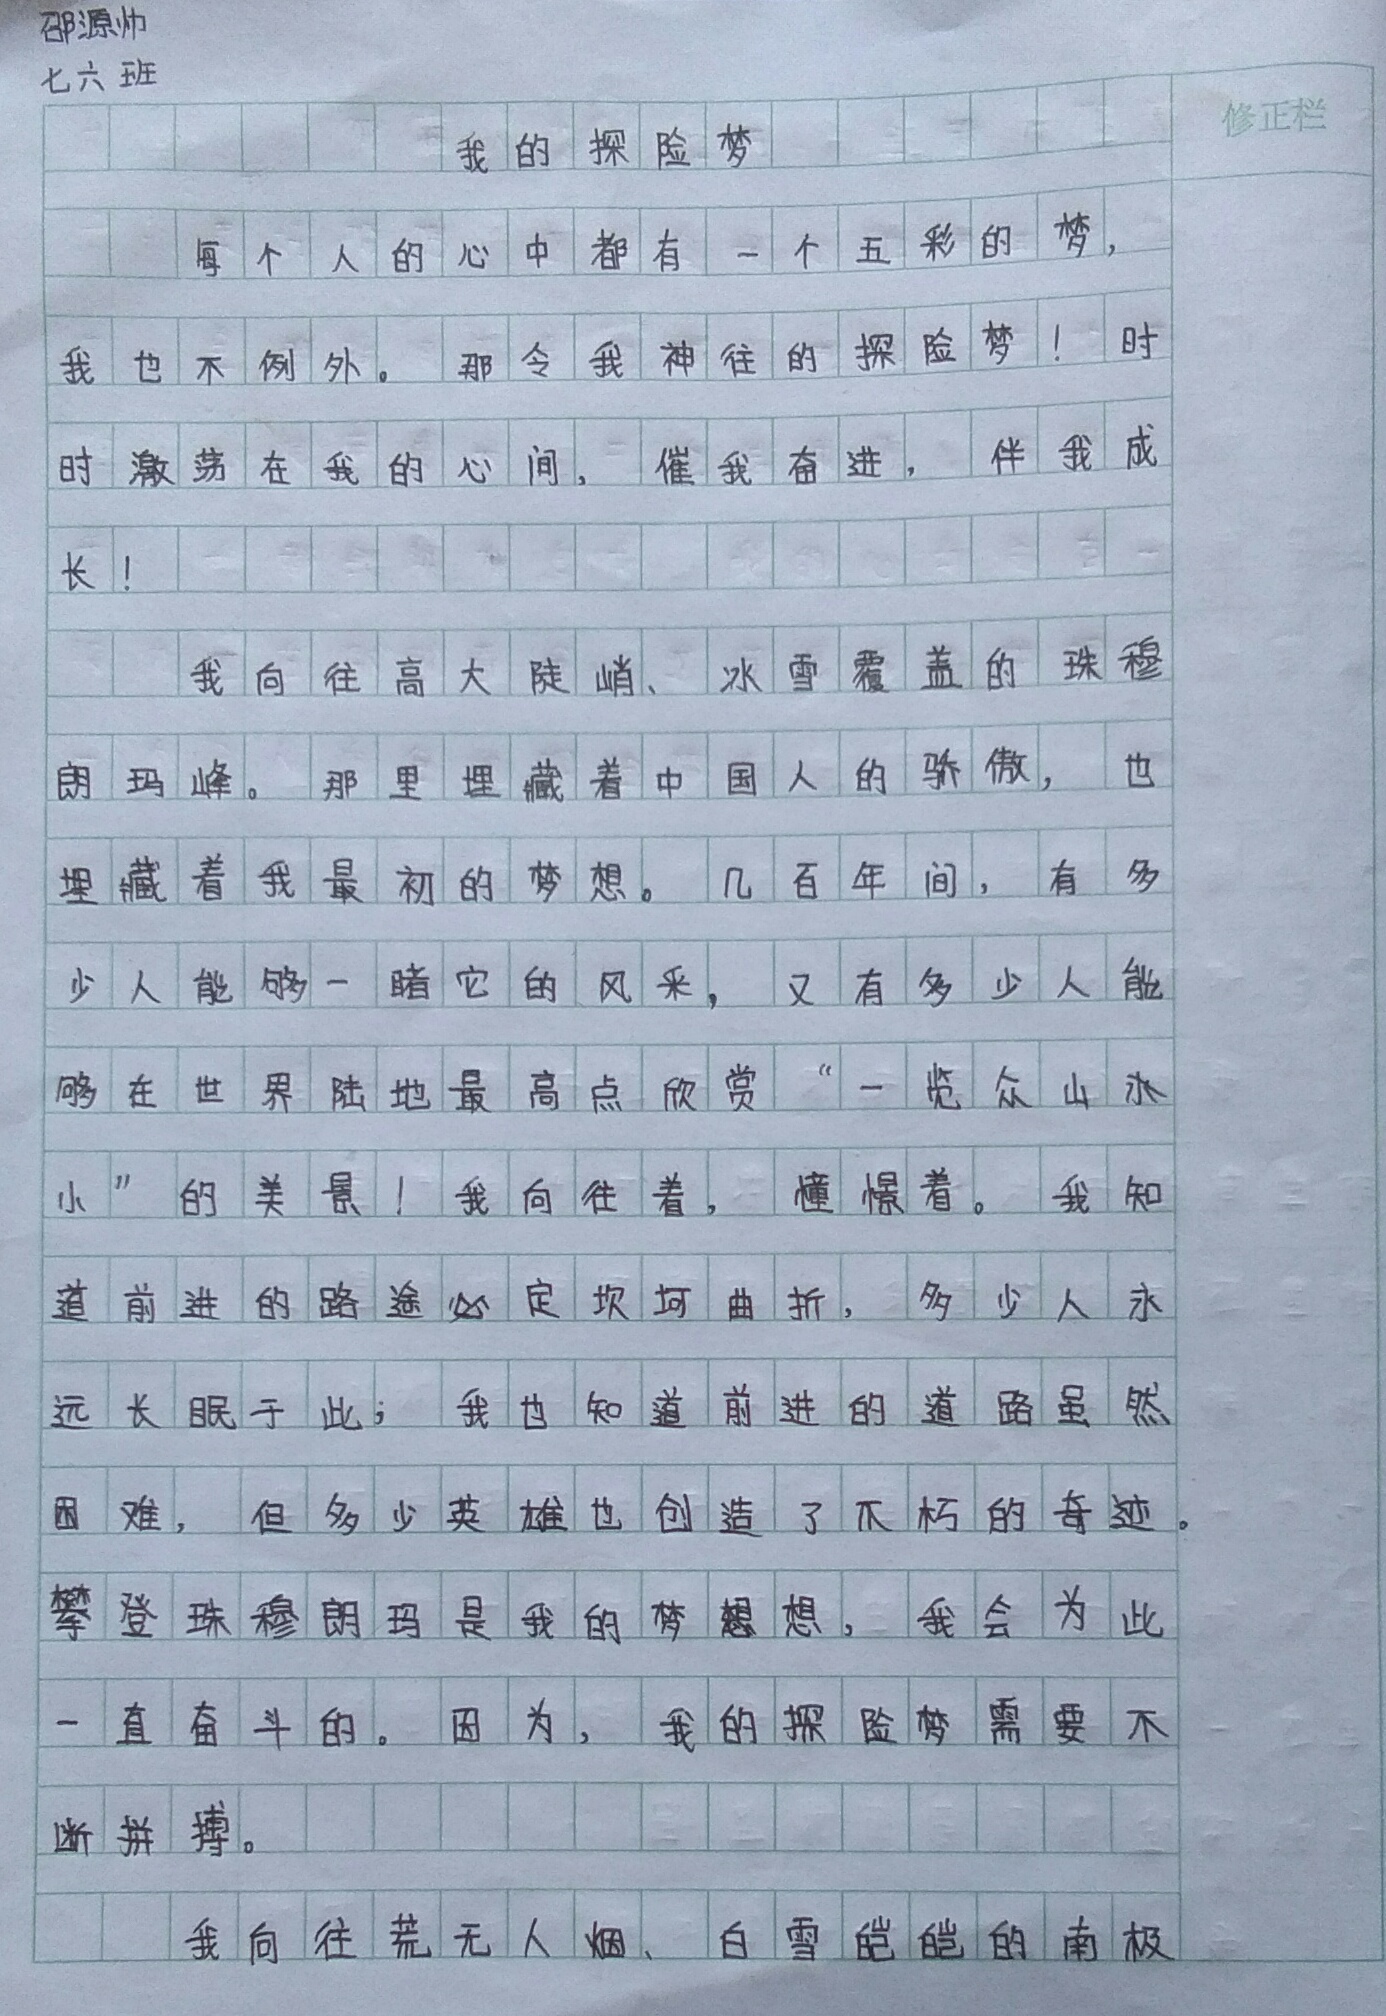 邵源帅
七六班
修正栏
我的探险梦
每个人的心中都有一个五彩的梦，
我也不例外。那令我神往的探险梦！时
时激荡在我的心间，催我奋进，伴我成
长！
我向往高大陡峭、冰雪覆盖的珠穆
朗玛峰。那里埋藏着中国人的骄傲，也
埋藏着我最初的梦想。几百年间，有多
少人能够一睹它的风采，又有多少人能
够在世界陆地最高点欣赏“一览众山水
小”的美景！我向往着，憧憬着。我知
道前进的路途必定坎坷曲折，多少人永
远长眠于此；我也知道前进的道路虽然
困难，但多少英雄也创造了不朽的奇迹。
攀登珠穆朗玛是我的梦想想，我会为此
一直奋斗的。因为，我的探险梦需要不
断拼搏。
我向往荒无人烟、白雪皑皑的南极